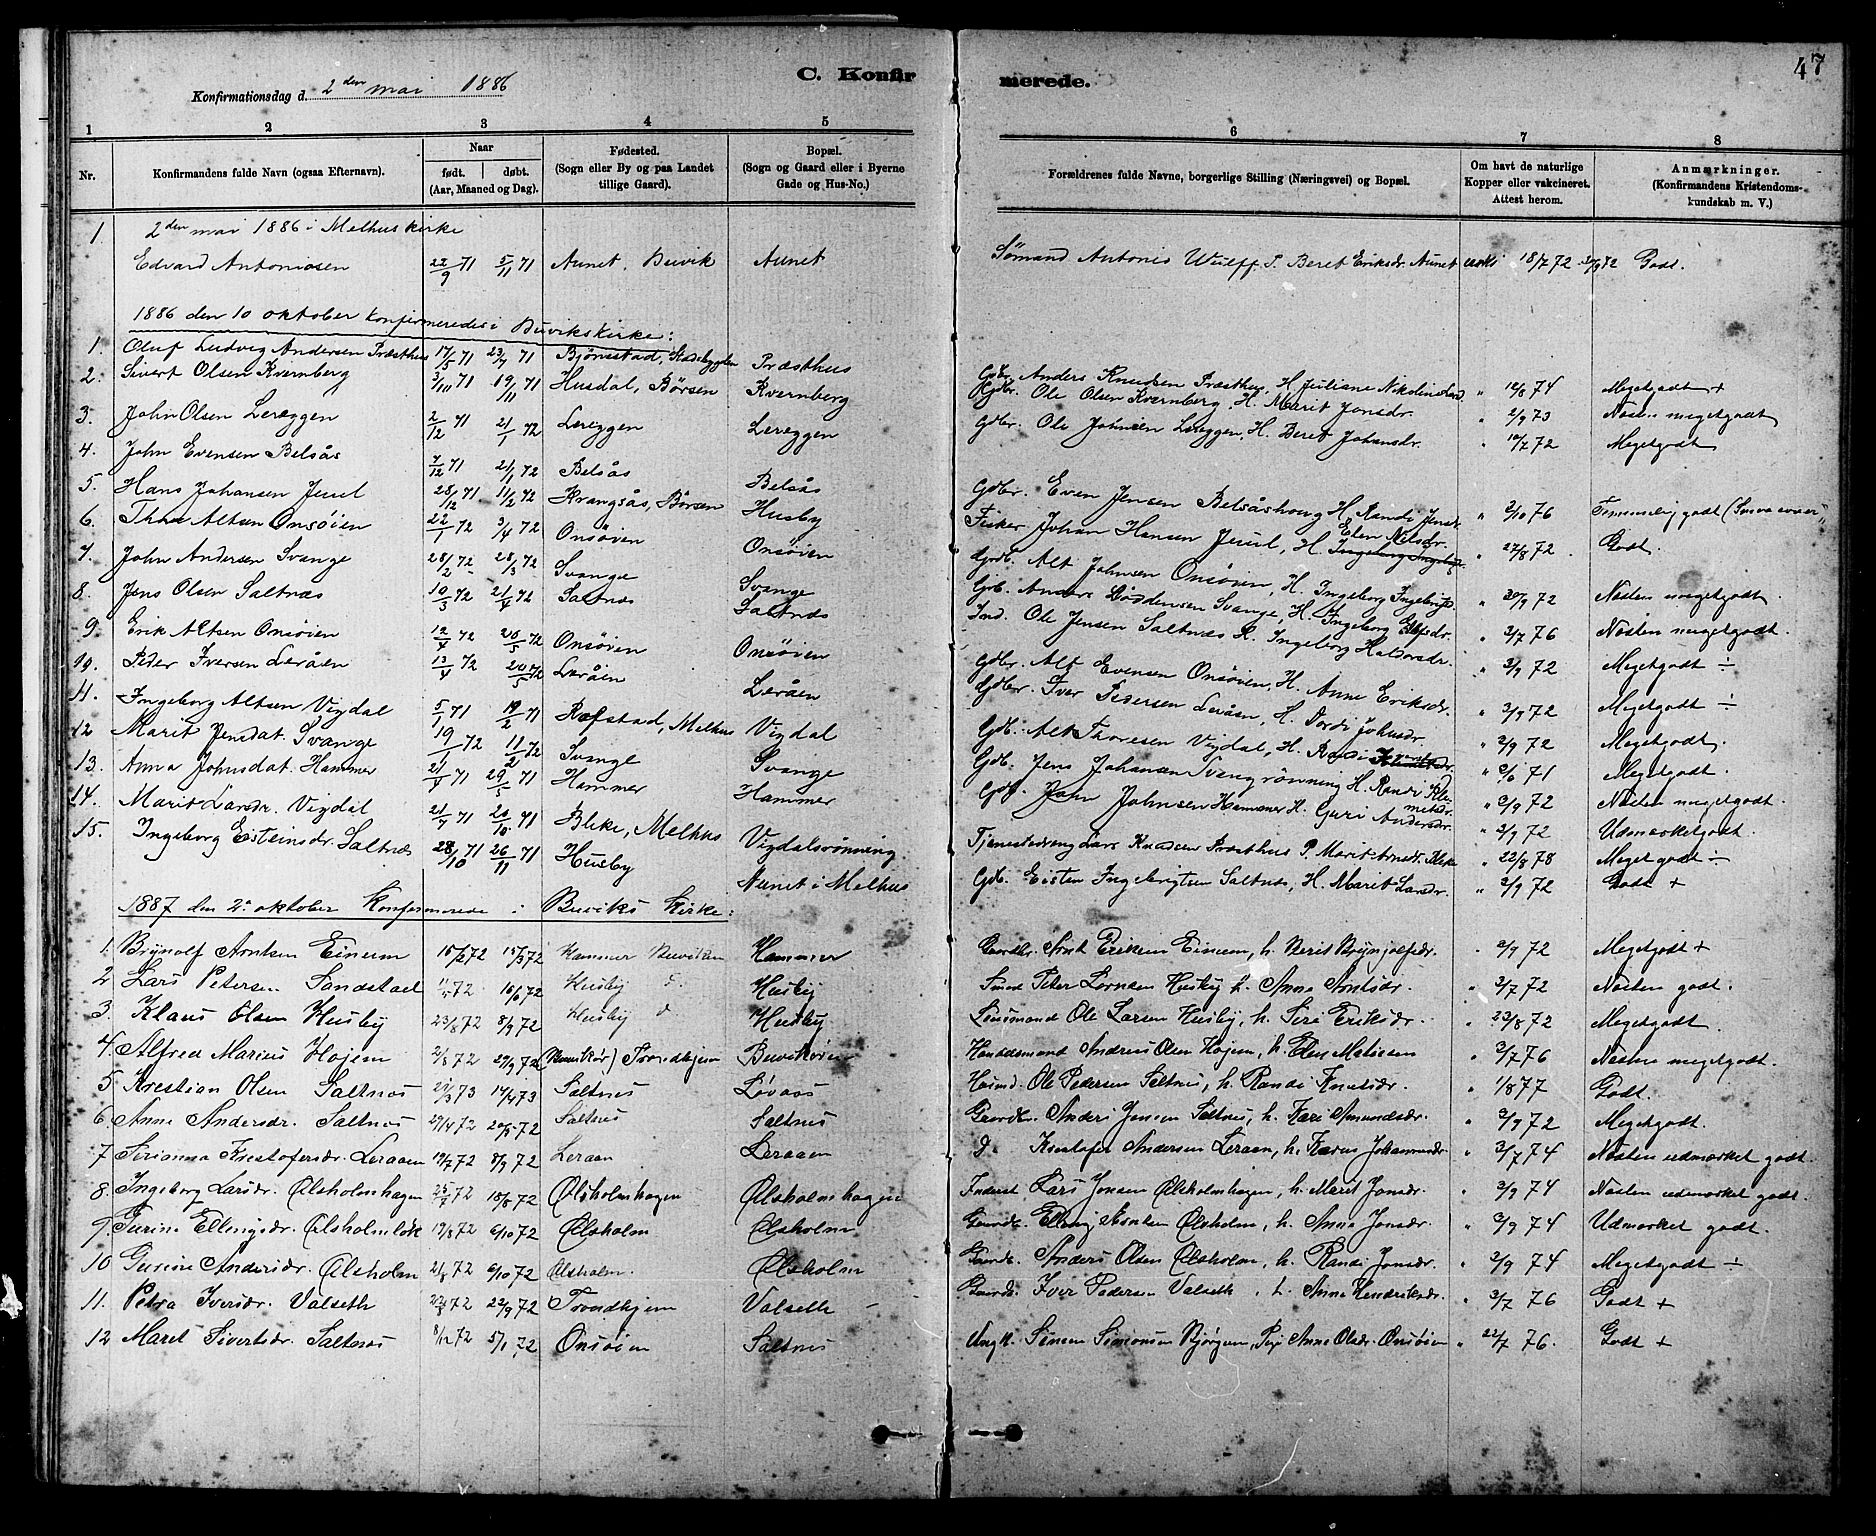 47
C. Konfirmerede.
Konfirmationsdag d. 2den mai 1886
1 2 3 4 5 6 7 8
Nr. Konfirmandens fulde Navn (ogsaa Efternavn). Naar født. døbt. (Aar, Maaned og Dag). Fødested. (Sogn eller By og paa Landet tillige Gaard). Bopæl. (Sogn og Gaard eller i Byerne Gade og Hus-No.) Forældrenes fulde Navne, borgerlige Stilling (Næringsvei) og Bopæl. Om havt de naturlige Kopper eller vakcineret. Attest herom. Anmærkninger. (Konfirmandens Kristendomskundskab m. V.)
2den mai 1886 i Melhus kirke
1. Edvard Antoniosen 22/9 71 5/11 71 Aunet, Buvik Aunet Sømand Antonis Wulff P. Beret Eriksdr. Aunet 18/7 72 Godt.
1886 den 10 oktober konfirmeredes i Buvikskirke:
1. Oluf Ludvig Andersen Præsthus 17/5 71 23/7 71 Bjørnstad, Stadsbygden Præsthus Gdbr. Anders Knudsen Præsthus, H. Juliane " 12/8 74 Megetgodt +
2. Sivert Olsen Kvernberg 3/10 71 19/11 71 Husdal, Børsen Kvernberg Gdbr. Ole Olsen Kvernberg, H. Marit Jonsdr. " 2/9 73 Nästen megetgodt
3. John Olsen Lereggen 2/12 71 21/1 72 Lereggen Lereggen Gdbr. Ole Johnsen Lereggen, H. Beret Johansdr. " 10/7 72 Megetgodt
4. John Evensen Belsås 7/12 71 21/1 72 Belsås Belsås Gdbr. Even Jensen Belsåshaug H. Randi Jensdr. " 2/10 76 Temmelig godt
5. Hans Johansen Juul 28/12 71 11/2 72 Krangsås, Børsen Husby Fisker Johan Hansen Juul, H. Elen Nilsdr. " 27/8 72 Godt.
6. Thore Altsen Onsöien 22/1 72 3/4 72 Onsöien Onsöien Gdb. Alt Johnsen Onsöien, H. Ingeborg " 20/9 72 Nästen megetgodt.
7. John Andersen Svange 28/2 72 28/3 72 Svange Svange Gdb. Anders Svange, H. Ingeborg " 3/7 76 Nästen megetgodt.
8. Jens Olsen Saltnæs 10/3 72 21/4 72 Saltnæs Saltnæs Ind. Ole Jensen Saltnæs H. Ingeborg Haldorsdr. " 3/9 72 Megetgodt ÷
9. Erik Altsen Onsöien 12/4 72 20/5 72 Onsöien Onsöien Gdbr. Alt Evensen Onsöien, H. Anne Eriksdr. " 3/9 72 Megetgodt ÷
10. Peder Iversen Leråen 13/4 72 20/5 72 Leråen Leråen Gdbr. Iver Pedersen Leråen, H. Dordi Johnsdr. " 2/9 72 Megetgodt.
11. Ingeborg Altsen Vigdal 5/1 71 19/2 71 Ræfstad, Melhus Vigdal Gdb. Alt Thoresen Vigdal, H. Randi " 6/6 71 Megetgodt.
12 Marit Jensdat. Svange 19/1 72 11/2 72 Svange Svange Gdb. Jens Johansen Svangrönning H. Randi Klemetsdr. " 2/9 72 Nästen megetgodt
13. Anna Johnsdat. Hammer 21/4 71 29/5 71 Hammer Hammer Gdb. John Johnsen Hammer H. Guri Andersdr. " 2/9 72 Udmærketgodt.
14. Marit Larsdr. Vigdal 21/7 71 20/10 71 Bleke, Melhus Vigdalsrönning Tjenestedreng Lars Knudsen Præsthus P. Marit Arnsdr. Bleke " 22/8 78 Meget godt ÷
15. Ingeborg Eisteinsdr. Saltnæs 28/10 71 26/11 71 Husby Aunet i Melhus Gdb. Eisten Ingebrigtsen Saltnæs, H. Marit Larsdr. " 2/9 72 Godt +
1887 den 2. oktober Konfirmerede i Buviks Kirke:
1. Brynolf Arntsen Eineum 10/2 72 15/3 72 Hammer Buviken Hammer Gaardbr. Arnt Eriksen Eineum, h. Berit Brynjolfsdr. " 2/9 72 Megetgodt +
2 Lars Petersen Sandstad 72 16/6 72 Husby d. Husby Smed Peter Husby h. Anne Arntsdr. " 3/7 72 Næsten godt.
3. Klaus Olsen Husby 23/8 72 8/9 72 Husby d Husby Lensmand Ole Larsen Husby, h. Siri Eriksdr. " 23/8 72 Megetgodt.
4. Alfred Marius Hojem 2/8 72 27/9 72 Trondhjem Buviksören Handelsmand Andreas Olsen Hojem, h. Elen Matiesen " 3/7 76 Næsten megetgodt.
5. Krestian Olsen Saltnes 2/3 73 14/4 73 Saltnes Løvaas Husmd. Ole Pedersen Saltnes, h. Randi Knutsdr. " 1/8 77 Godt.
6. Anne Andersdr. Saltnes 29/4 72 20/5 72 Saltnes Saltnes Gaardb. Anders Jensen Saltnes, h. Kari Amundsdr. " 3/9 72 Megetgodt.
7 Serianna Krestofersdr. Leraaen 19/7 72 8/9 72 Leraan Leraaen D. Krestofer Andersen Leraaen, h. Karen Johannesdr " 3/7 74 Næsten udmærket godt.
8. Ingeborg Larsdr. Ølsholmhagen 25/7 72 18/8 72 Ølsholmhagen Ølsholmhagen Inderst Lars Jonsen Ølsholmhagen, h. Marit Jonsdr. " 3/9 74 Næsten udmærket godt.
9. Gurine Ellingsdr. Ølsholmløk 19/8 72 6/10 72 Ølsholm Ølsholm Gaardb. Elling Ølsholm, h. Anne Jonsdr. " 3/9 74 Udmærket godt.
10 Gurine Andersdr. Ølsholm 21/8 72 6/10 72 Ølsholm. Ølsholm Gaardb. Anders Olsen Ølsholm, h. Randi Jonsdr. " 2/9 74 Megetgodt ÷
11. Petra Iversdr. Valseth 72 22/9 72 Trondhjem Valseth Gaardb. Iver Pedersen Valseth, h. Anne Hendriksdr. " 3/7 76 Godt +
12 Maret Sivertsdr. Saltnes 8/12 72 5/1 72 Onsøien Saltnes Ungk. Simen Simonsen Bjørgum, Pige Anne Olsdr. Onsøien " 22/7 76. Godt +